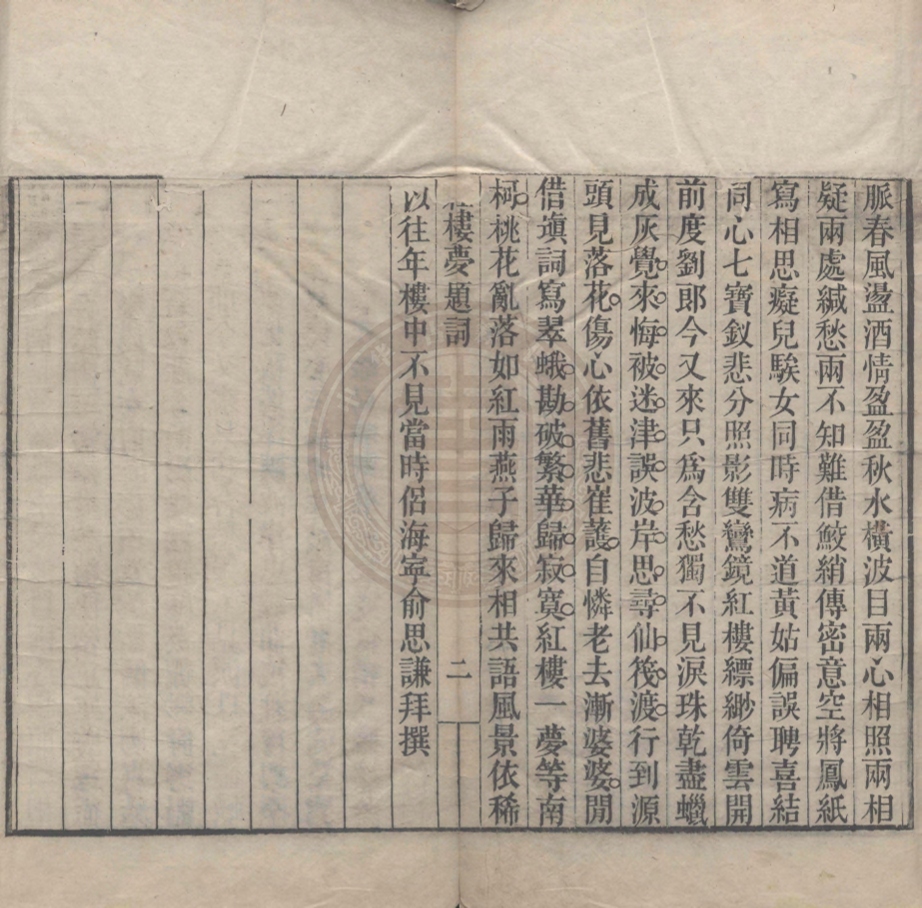 脈春風盪酒情盈盈秋水橫波目兩心相照兩相
疑兩處緘愁兩不知難借鮫綃傳密意空將鳳紙
寫相思癡兒騃女同時病不道黃姑偏誤聘喜結
同心七寶釵悲分照影雙鸞鏡紅樓縹緲倚雲開
前度劉郎今又來只爲含愁獨不見淚珠乾盡蠟
成灰覺來悔被迷津誤波岸思尋仙筏渡行到源
頭見落花傷心依舊悲崔護自憐老去漸婆婆閒
借瑱詞寫翠蛾勘破繁華歸寂寞紅樓一夢等南
柯桃花亂落如紅雨燕子歸來相共語風景依稀
樓夢題詞
二
以往年樓中不見當時侶海寧俞思謙拜撰